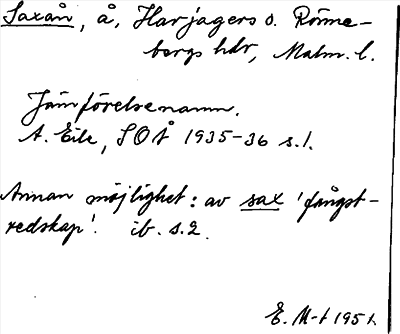 Saxån, å, Harjagers o. Rönne-
bergs hdr, Malm. l.
Jämförelsenamn.
A. Eile, SOÅ 1935-36 s. 1.
Annan möjlighet: av sax 'fångst-
redskap'. ib. s. 2.
E. M-t 1951.